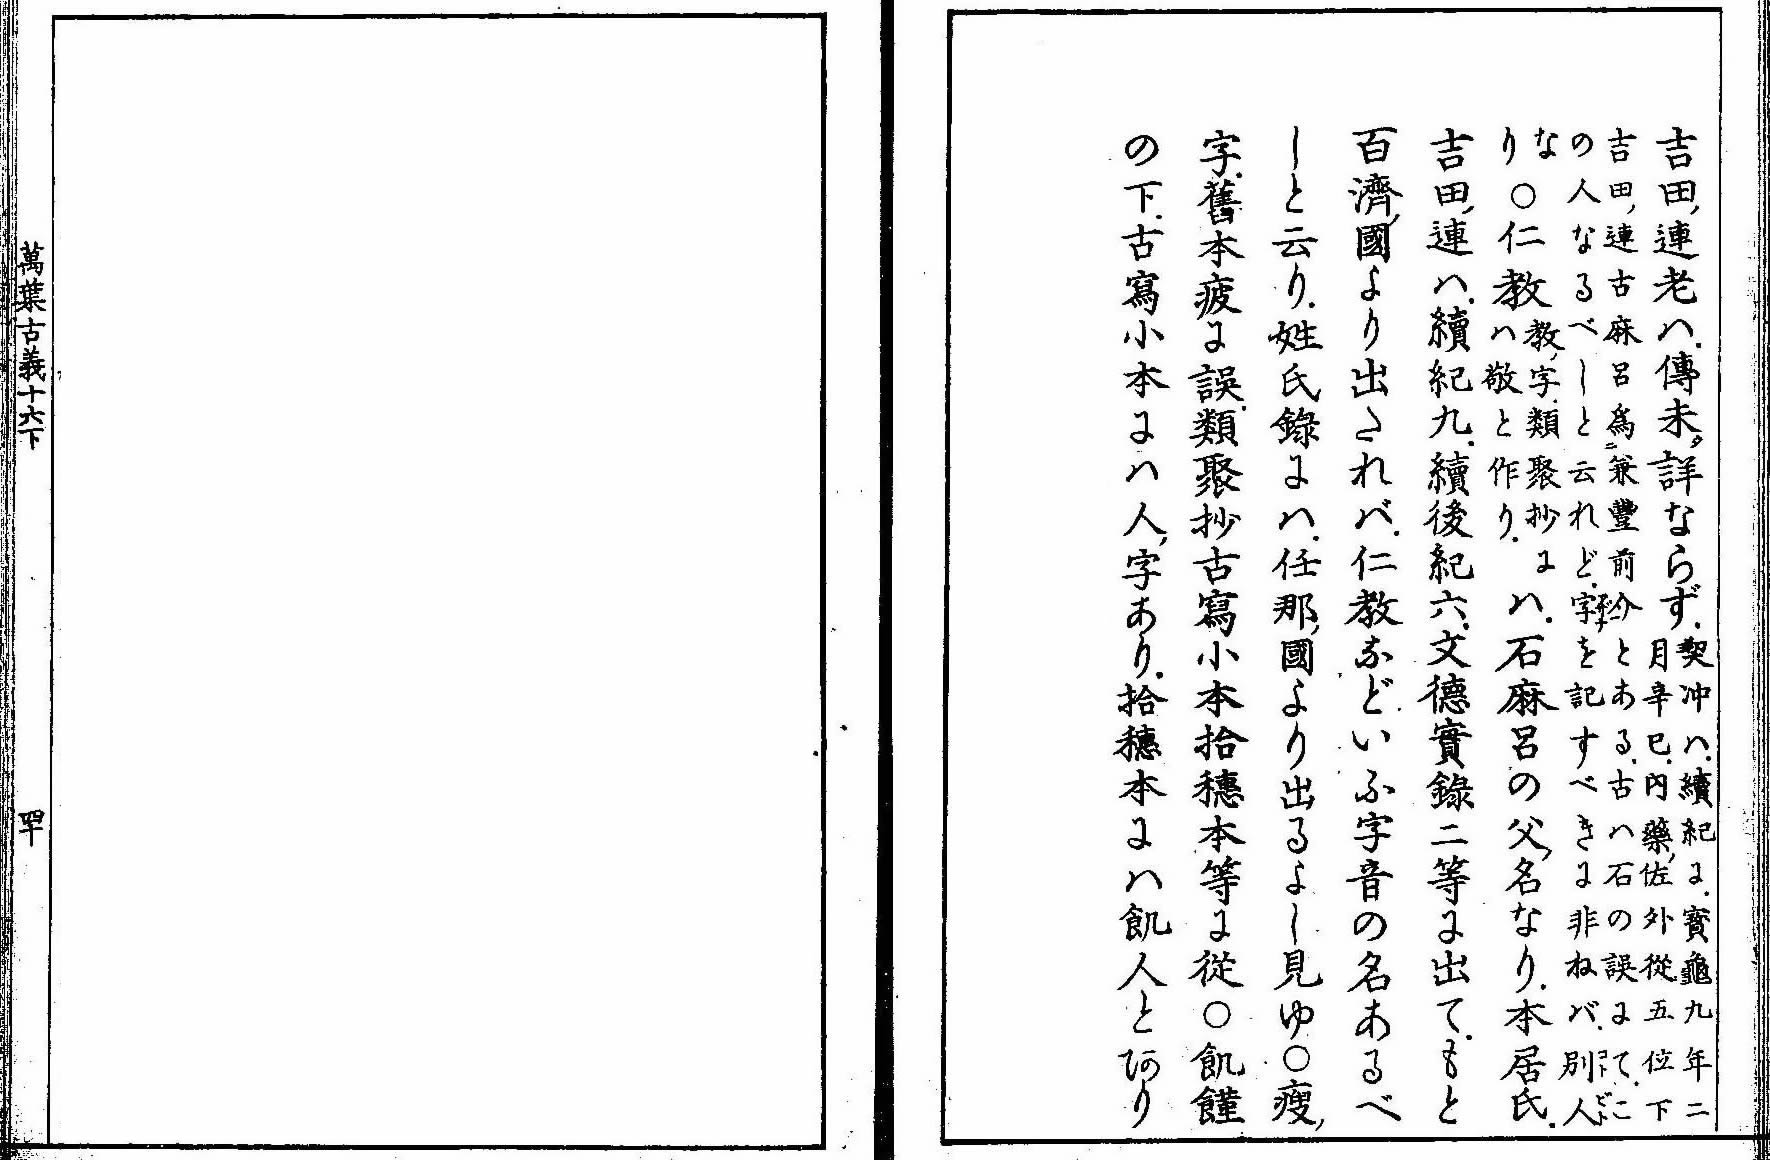 吉田,連老ハ.傳未ダ詳ならず.契冲ハ.續紀に.寶龜九年二
月辛巳.内藥,佐外從五位下
吉田,連古麻呂爲ニ兼豐前介とある.古ハ石の誤にて.こ
の人なるべしと云れど.字を記すべきに非ねバ.別人
なり○仁教教,字.類聚抄に
ハ敬と作り.ハ.石麻呂の父,名なり.本居氏.
吉田,連ハ.續紀九.續後紀六.文德實錄二等に出て.もと
百濟,國より出たれバ.仁教などいふ字音の名あるべ
しと云り.姓氏錄にハ.任那,國より出るよし見ゆ○瘦,
字.舊本疲に誤.類聚抄古寫小本拾穗本等に從○飢饉
の下.古寫小本にハ人,字あり.拾穗本にハ飢人とあり
萬葉古義十六下
四十